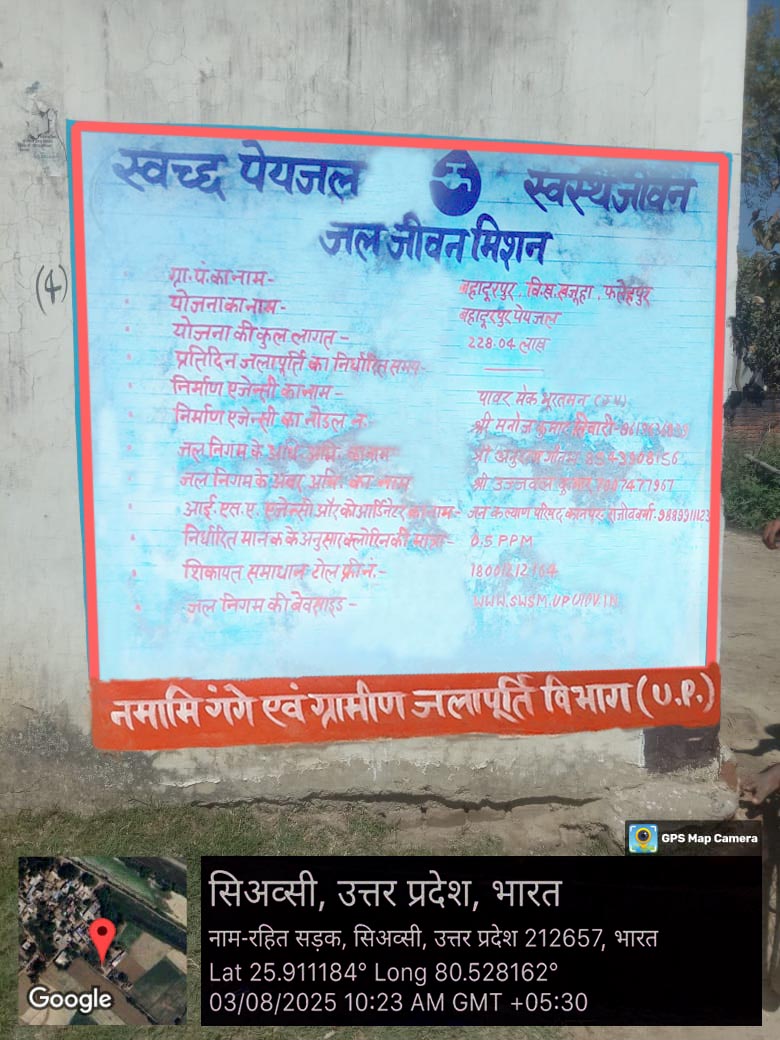 स्वच्छ पेयजल स्वस्थ जीवन
जल जीवन मिशन
(4)
ग्रा. पं. का नाम- बहादूरपुर, वि.ख. खजूहा, फतेहपुर
योजना का नाम- बहादूरपुर पेयजल
योजना की कुल लागत- 228.04 लाख
प्रतिदिन जलापूर्ति का निर्धारित समय-
निर्माण एजेन्सी का नाम- पावर मेक
निर्माण एजेन्सी का नोडल न. श्री मनोज कुमार तिवारी-
जल निगम के अधि. अभि. का नाम श्री 8543908156
जल निगम के अवर अभि. का नाम श्री उज्जवल कुमार
आई. एस. ए. एजेन्सी और कोआर्डिनेटर का नाम- जन कल्याण परिषद कानपुर
निर्धारित मानक के अनुसार क्लोरिन की मात्रा- 0.5 PPM
शिकायत समाधान टोल फ्री नं.-
जल निगम की बेवसाइड-
नमामि गंगे एवं ग्रामीण जलापूर्ति विभाग (U.P.)
GPS Map Camera
सिअव्सी, उत्तर प्रदेश, भारत
नाम-रहित सड़क, सिअव्सी, उत्तर प्रदेश 212657, भारत
Lat 25.911184° Long 80.528162°
03/08/2025 10:23 AM GMT +05:30
Google